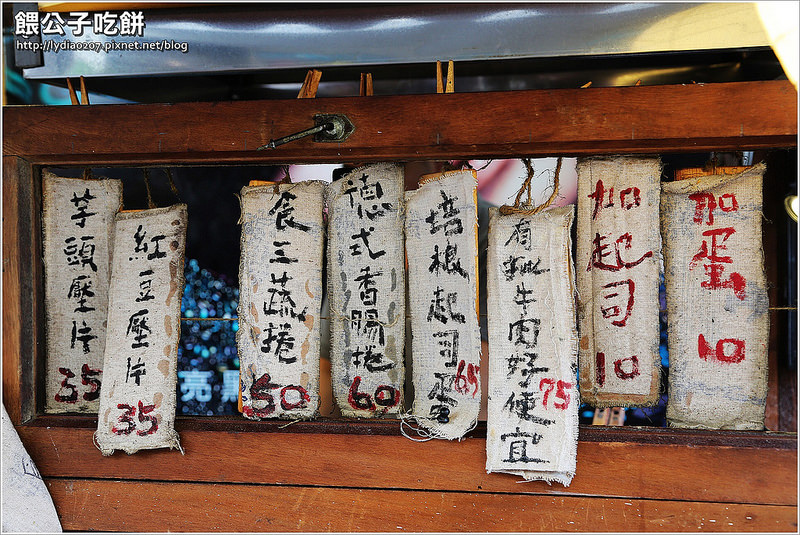 餵公子吃餅
http://lydia0207.pixnet.net/blog
芋頭壓片 35
紅豆壓片 35
食三蔬捲 50
德式香腸捲 60
培根起司蛋 65
有牛肉好便宜 75
加起司 10
加蛋 10